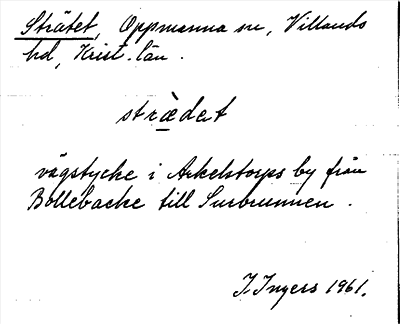 Strätet, Oppmanna sn, Villands
hd, Krist. län.
stræ̀det
vägstycke i Arkelstorps by från
Bollebacke till Surbrunnen.
I. Ingers 1961.